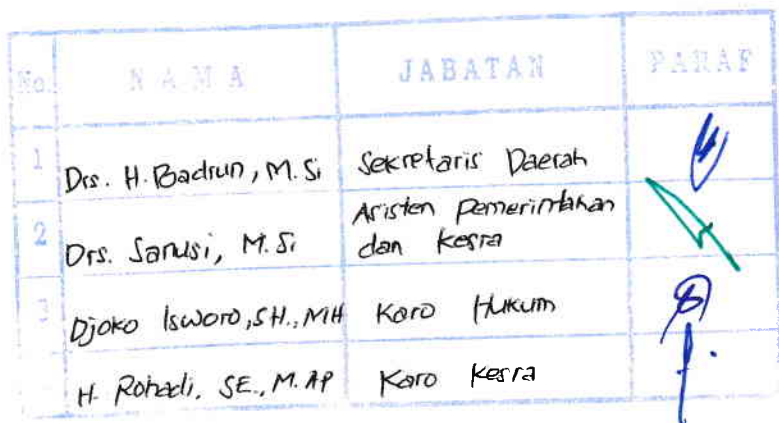 No. NAMA JABATAN PARAF
1 Drs. H. Badrun, M. Si Sekretaris Daerah
Asisten Pemerintahan
2 Drs. Sanusi, M. Si dan Kesra
3 Djoko Isworo, SH., MH Karo Hukum
H. Rohadi, SE., M. AP Karo Kesra